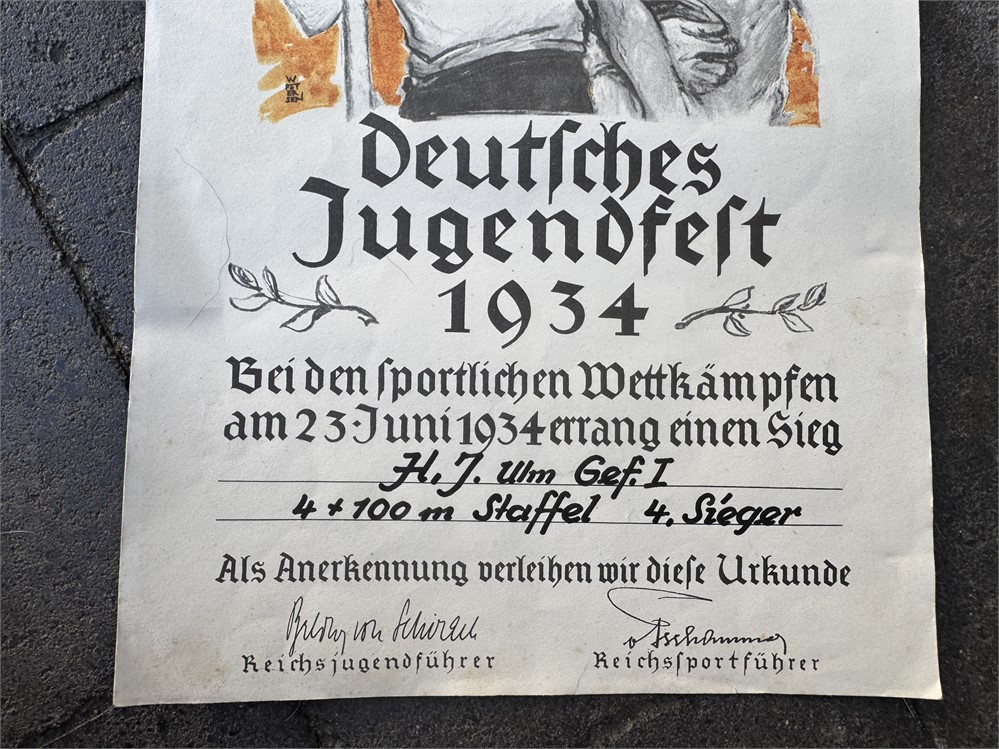 W
PET
ER
SEN
Deutsches
Jugendfest
1934
Bei den sportlichen Wettkämpfen
am 23. Juni 1934 errang einen Sieg
H. J. Ulm Gef. I
4 + 100 m Staffel 4. Sieger
Als Anerkennung verleihen wir diese Urkunde
Baldur von Schirach
v Tschammer
Reichsjugendführer
Reichssportführer